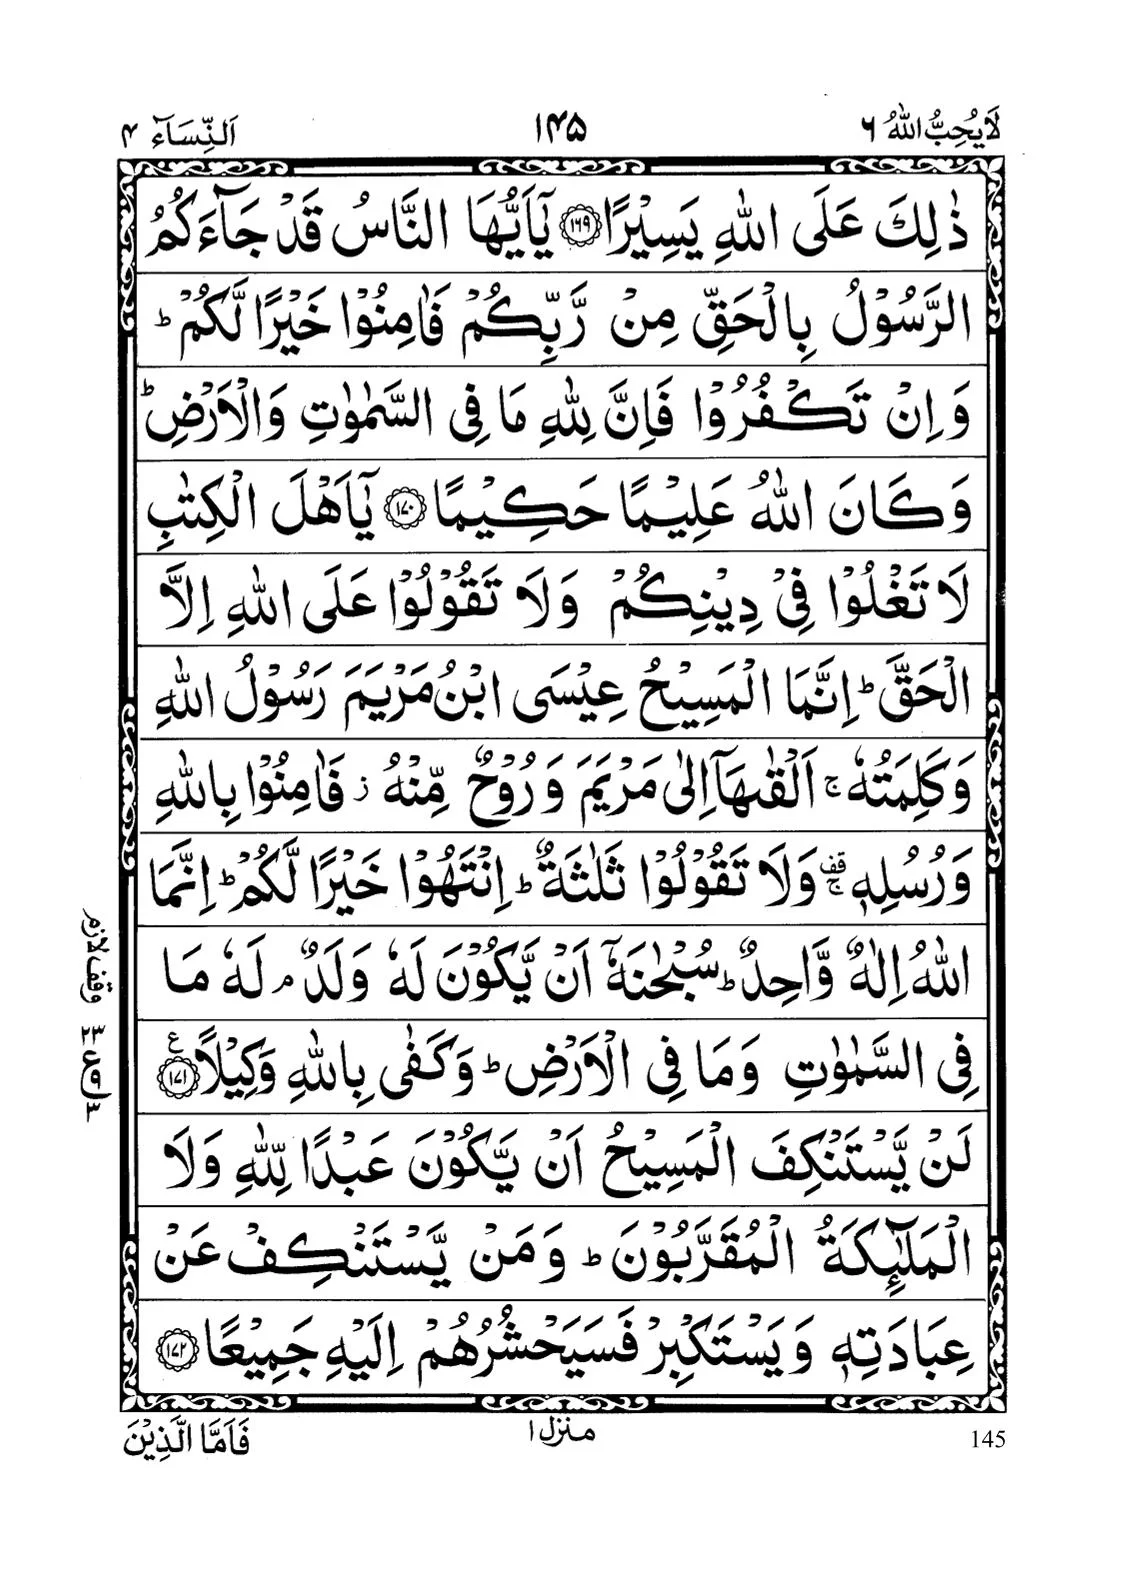 لَا يُحِبُّ اللّٰهُ ۶
۱۴۵
اَلنِّسَآء ۴
ذٰلِكَ عَلَى اللّٰهِ يَسِيْرًا ﴿۱۶۹﴾ يٰۤاَيُّهَا النَّاسُ قَدْ جَآءَكُمُ
الرَّسُوْلُ بِالْحَقِّ مِنْ رَّبِّكُمْ فَاٰمِنُوْا خَيْرًا لَّكُمْ ؕ
وَاِنْ تَكْفُرُوْا فَاِنَّ لِلّٰهِ مَا فِى السَّمٰوٰتِ وَالْاَرْضِ ؕ
وَكَانَ اللّٰهُ عَلِيْمًا حَكِيْمًا ﴿۱۷۰﴾ يٰۤاَهْلَ الْكِتٰبِ
لَا تَغْلُوْا فِىْ دِيْنِكُمْ وَلَا تَقُوْلُوْا عَلَى اللّٰهِ اِلَّا
الْحَقَّ ؕ اِنَّمَا الْمَسِيْحُ عِيْسَى ابْنُ مَرْيَمَ رَسُوْلُ اللّٰهِ
وَكَلِمَتُهٗ ۚ اَلْقٰىهَاۤ اِلٰى مَرْيَمَ وَرُوْحٌ مِّنْهُ ز فَاٰمِنُوْا بِاللّٰهِ
وَرُسُلِهٖ قف ۚ وَلَا تَقُوْلُوْا ثَلٰثَةٌ ؕ اِنْتَهُوْا خَيْرًا لَّكُمْ ؕ اِنَّمَا
اللّٰهُ اِلٰهٌ وَّاحِدٌ ؕ سُبْحٰنَهٗۤ اَنْ يَّكُوْنَ لَهٗ وَلَدٌ ۘ لَهٗ مَا
فِى السَّمٰوٰتِ وَمَا فِى الْاَرْضِ ؕ وَكَفٰى بِاللّٰهِ وَكِيْلًا ﴿۱۷۱﴾ ع
لَنْ يَّسْتَنْكِفَ الْمَسِيْحُ اَنْ يَّكُوْنَ عَبْدًا لِّلّٰهِ وَلَا
الْمَلٰٓئِكَةُ الْمُقَرَّبُوْنَ ؕ وَمَنْ يَّسْتَنْكِفْ عَنْ
عِبَادَتِهٖ وَيَسْتَكْبِرْ فَسَيَحْشُرُهُمْ اِلَيْهِ جَمِيْعًا ﴿۱۷۲﴾
وقف لازم
۲۳
ع
۳
فَاَمَّا الَّذِيْنَ
منزل ۱
145